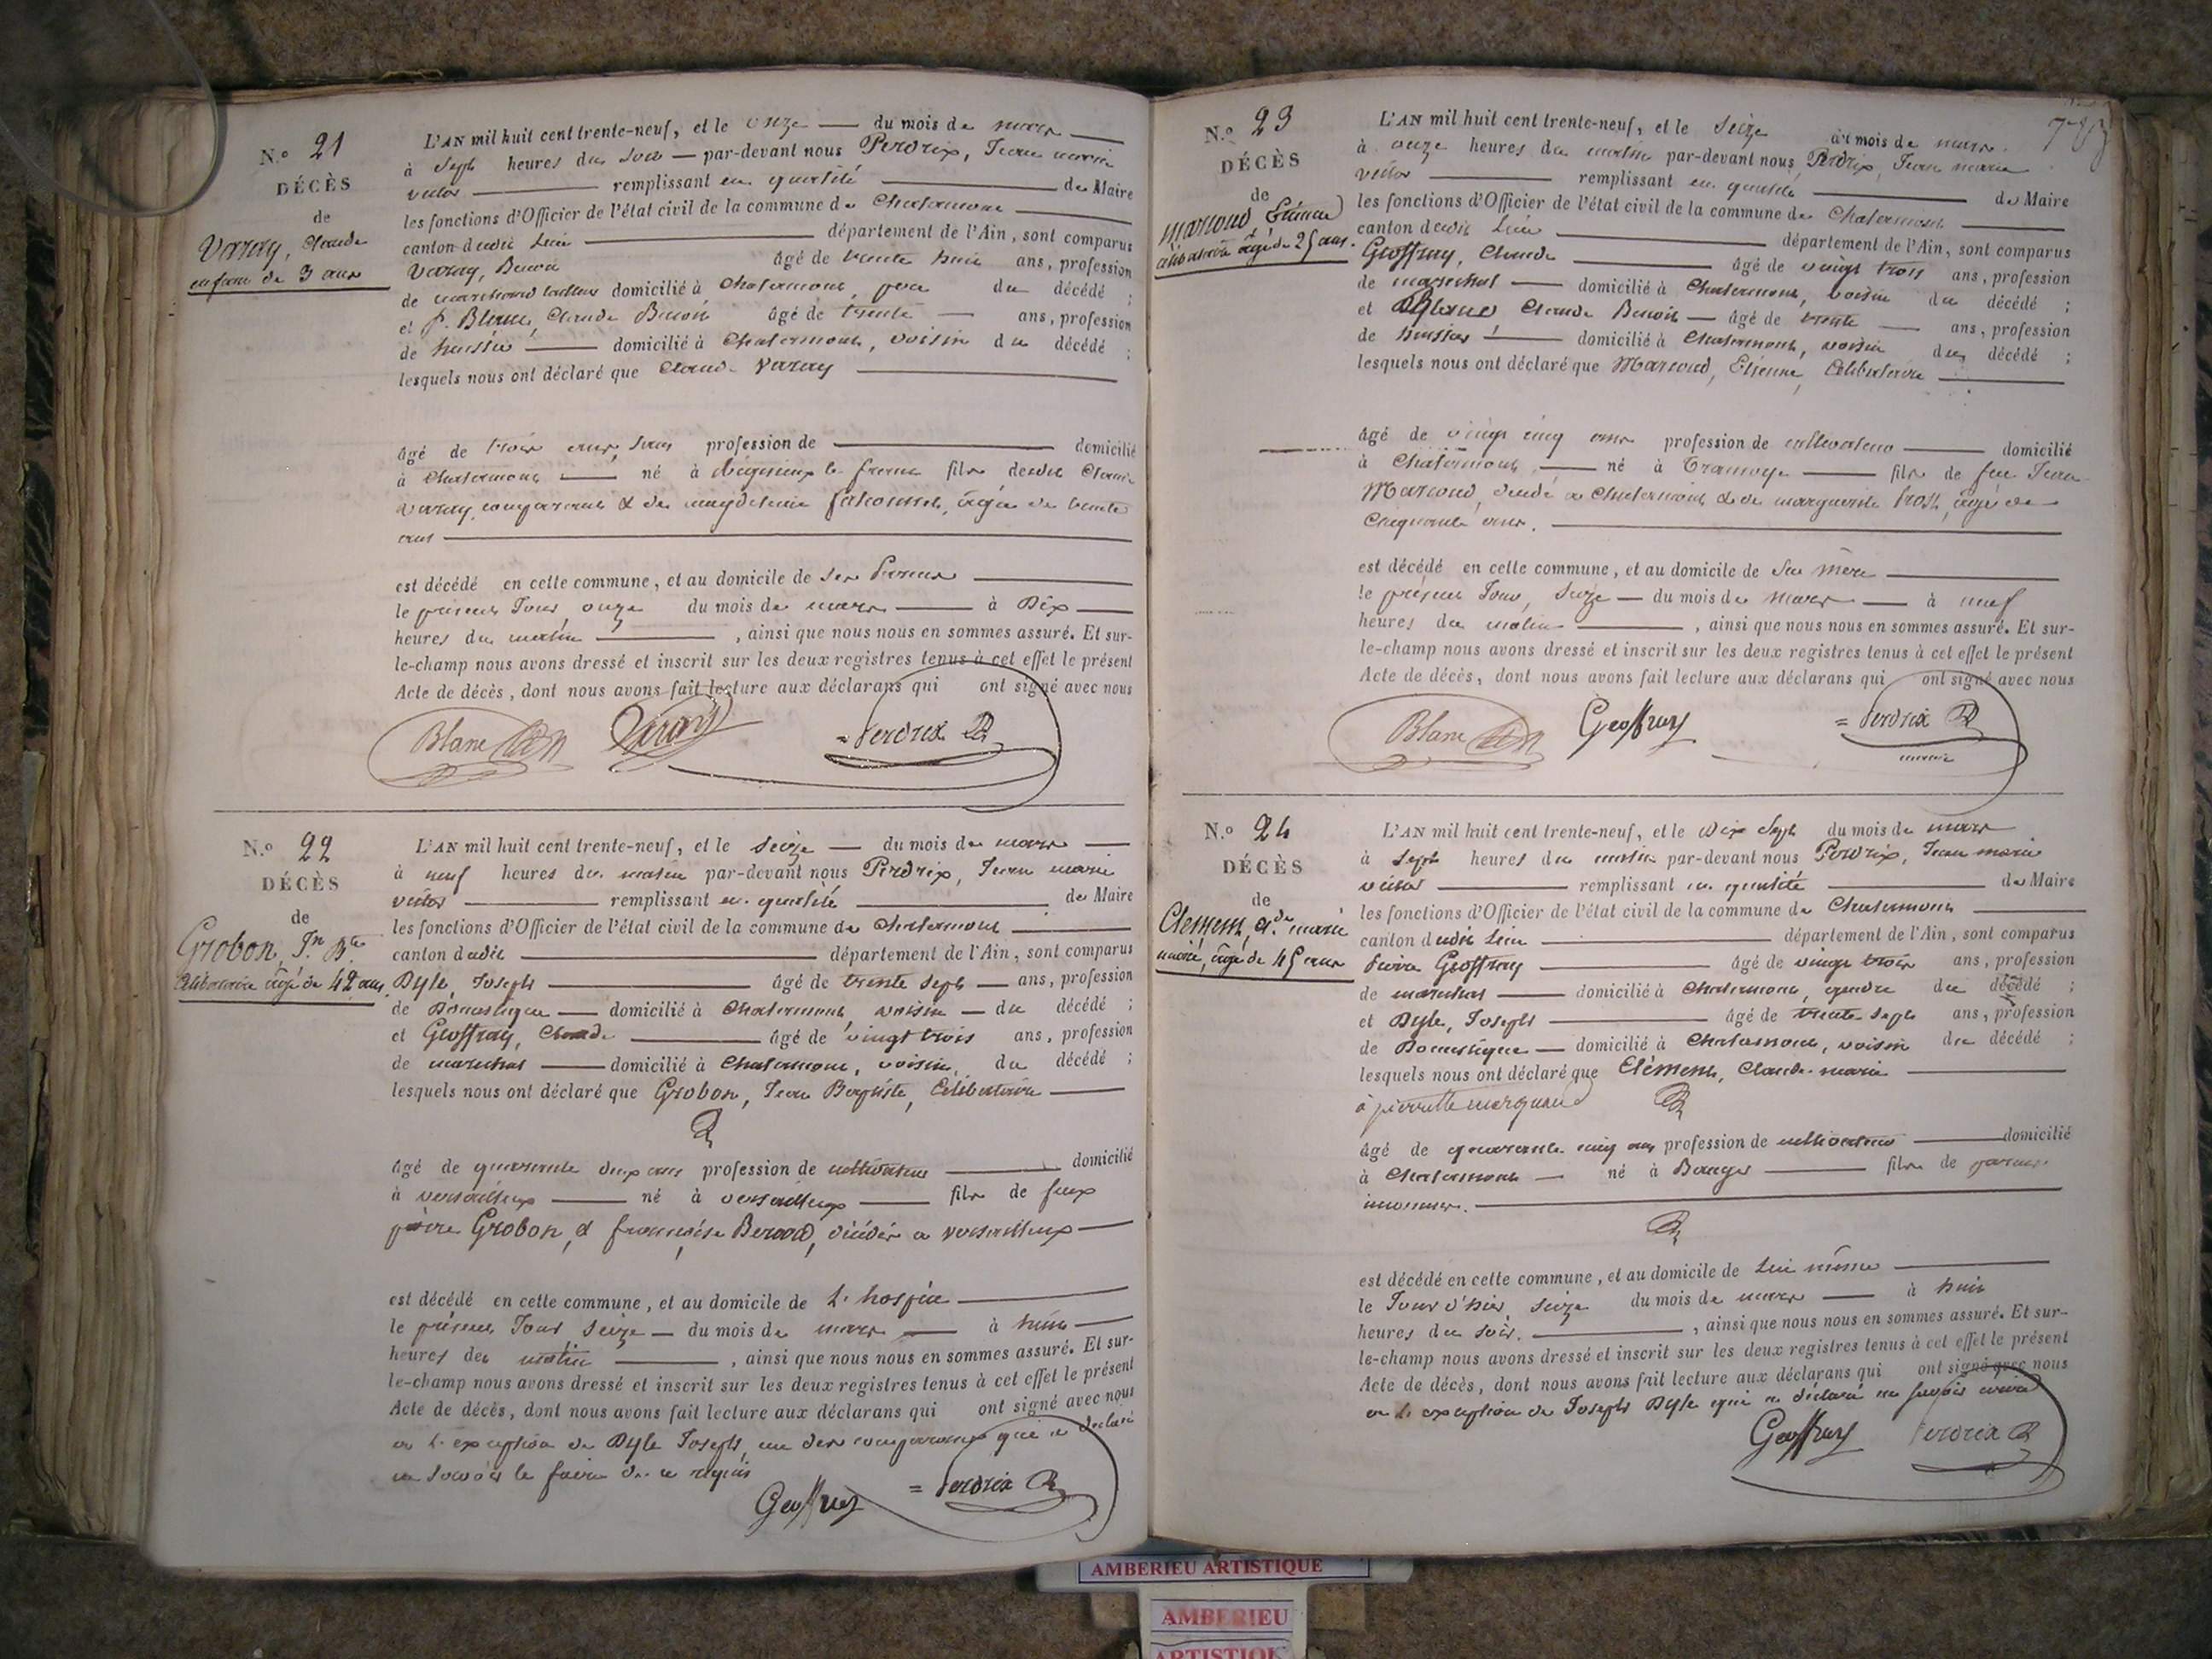 N.o 21
DÉCÈS
de
Varay, Claude
enfant de 3 ans
L'AN mil huit cent trente-neuf, et le onze du mois de mars
à sept heures du soir par-devant nous Perdrix, Jean marie
victor remplissant en qualité de Maire
les fonctions d'Officier de l'état civil de la commune de Chalamont
canton dudit Lieu département de l'Ain, sont comparus
Varay, Benoit âgé de trente huit ans, profession
de marchand tailleur domicilié à Chalamont, père du décédé ;
et Blanc, Claude Benoit âgé de trente ans, profession
de huissier domicilié à Chalamont, voisin du décédé ;
lesquels nous ont déclaré que Claude Varay
âgé de trois ans, sans profession de domicilié
à Chalamont né à le franc fils dudit
Varay, comparant & de magdelaine âgée de trente
ans
est décédé en cette commune, et au domicile de ses Parens
le présent Jour, onze du mois de mars à Dix
heures du matin , ainsi que nous nous en sommes assuré. Et sur-
le-champ nous avons dressé et inscrit sur les deux registres tenus à cet effet le présent
Acte de décès, dont nous avons fait lecture aux déclarans qui ont signé avec nous
Blanc Varay = Perdrix
N.o 22
DÉCÈS
de
Grobon, Jn Bte
Célibataire âgé de 42 ans.
L'AN mil huit cent trente-neuf, et le seize du mois de mars
à neuf heures du matin par-devant nous Perdrix, Jean marie
victor remplissant en qualité de Maire
les fonctions d'Officier de l'état civil de la commune de Chalamont
canton dudit département de l'Ain, sont comparus
Dyle, Joseph âgé de trente sept ans, profession
de Domestique domicilié à Chalamont, voisin du décédé ;
et Geoffray, Claude âgé de vingt trois ans, profession
de maréchal domicilié à Chalamont, voisin, du décédé ;
lesquels nous ont déclaré que Grobon, Jean Baptiste, Célibataire
âgé de quarante deux ans profession de cultivateur domicilié
à versailleux né à versailleux fils de feux
pierre Grobon, & françoise Berard, décédés à versailleux
est décédé en cette commune, et au domicile de L'hospice
le présent Jour seize du mois de mars à huit
heures du matin , ainsi que nous nous en sommes assuré. Et sur-
le-champ nous avons dressé et inscrit sur les deux registres tenus à cet effet le présent
Acte de décès, dont nous avons fait lecture aux déclarans qui ont signé avec nous
à L'exception de Dyle Joseph, un des comparants qui a déclaré
ne savoir le faire de ce requis
Geoffray = Perdrix
N.o 23
DÉCÈS
de
Marcoud Étienne
célibataire âgé de 25 ans.
L'AN mil huit cent trente-neuf, et le seize du mois de mars.
à onze heures du matin par-devant nous Perdrix, Jean marie
victor remplissant en qualité de Maire
les fonctions d'Officier de l'état civil de la commune de Chalamont
canton dudit Lieu département de l'Ain, sont comparus
Geoffray, Claude âgé de vingt trois ans, profession
de maréchal domicilié à Chalamont, voisin du décédé ;
et Blanc Claude Benoit âgé de trente ans, profession
de huissier domicilié à Chalamont, voisin du décédé ;
lesquels nous ont déclaré que Marcoud, Étienne, Célibataire
âgé de vingt cinq ans profession de cultivateur domicilié
à Chalamont, né à Tramoye fils de feu Jean
Marcoud, décédé à Chalamont & de marguerite âgée de
Cinquante ans.
est décédé en cette commune, et au domicile de sa mère
le présent Jour, seize du mois de mars à neuf
heures du matin , ainsi que nous nous en sommes assuré. Et sur-
le-champ nous avons dressé et inscrit sur les deux registres tenus à cet effet le présent
Acte de décès, dont nous avons fait lecture aux déclarans qui ont signé avec nous
Blanc Geoffray = Perdrix
N.o 24
DÉCÈS
de
Clément, Cde marie
marié, âgé de 45 ans
L'AN mil huit cent trente-neuf, et le dix sept du mois de mars
à sept heures du matin par-devant nous Perdrix, Jean marie
victor remplissant en qualité de Maire
les fonctions d'Officier de l'état civil de la commune de Chalamont
canton dudit Lieu département de l'Ain, sont comparus
Pierre Geoffray âgé de vingt trois ans, profession
de maréchal domicilié à Chalamont, gendre du décédé ;
et Dyle, Joseph âgé de trente-sept ans, profession
de Domestique domicilié à Chalamont, voisin du décédé ;
lesquels nous ont déclaré que Clément, Claude-marie
à pierrette marguand
âgé de quarante cinq ans profession de cultivateur domicilié
à Chalamont né à Bourges fils de parens
inconnus.
est décédé en cette commune, et au domicile de Lui même
le Jour d'hier, seize du mois de mars à huit
heures du soir. , ainsi que nous nous en sommes assuré. Et sur-
le-champ nous avons dressé et inscrit sur les deux registres tenus à cet effet le présent
Acte de décès, dont nous avons fait lecture aux déclarans qui ont signé avec nous
à L'exception de Joseph Dyle qui a déclaré ne savoir écrire
Geoffray Perdrix
AMBERIEU ARTISTIQUE
AMBERIEU
ARTISTIQUE